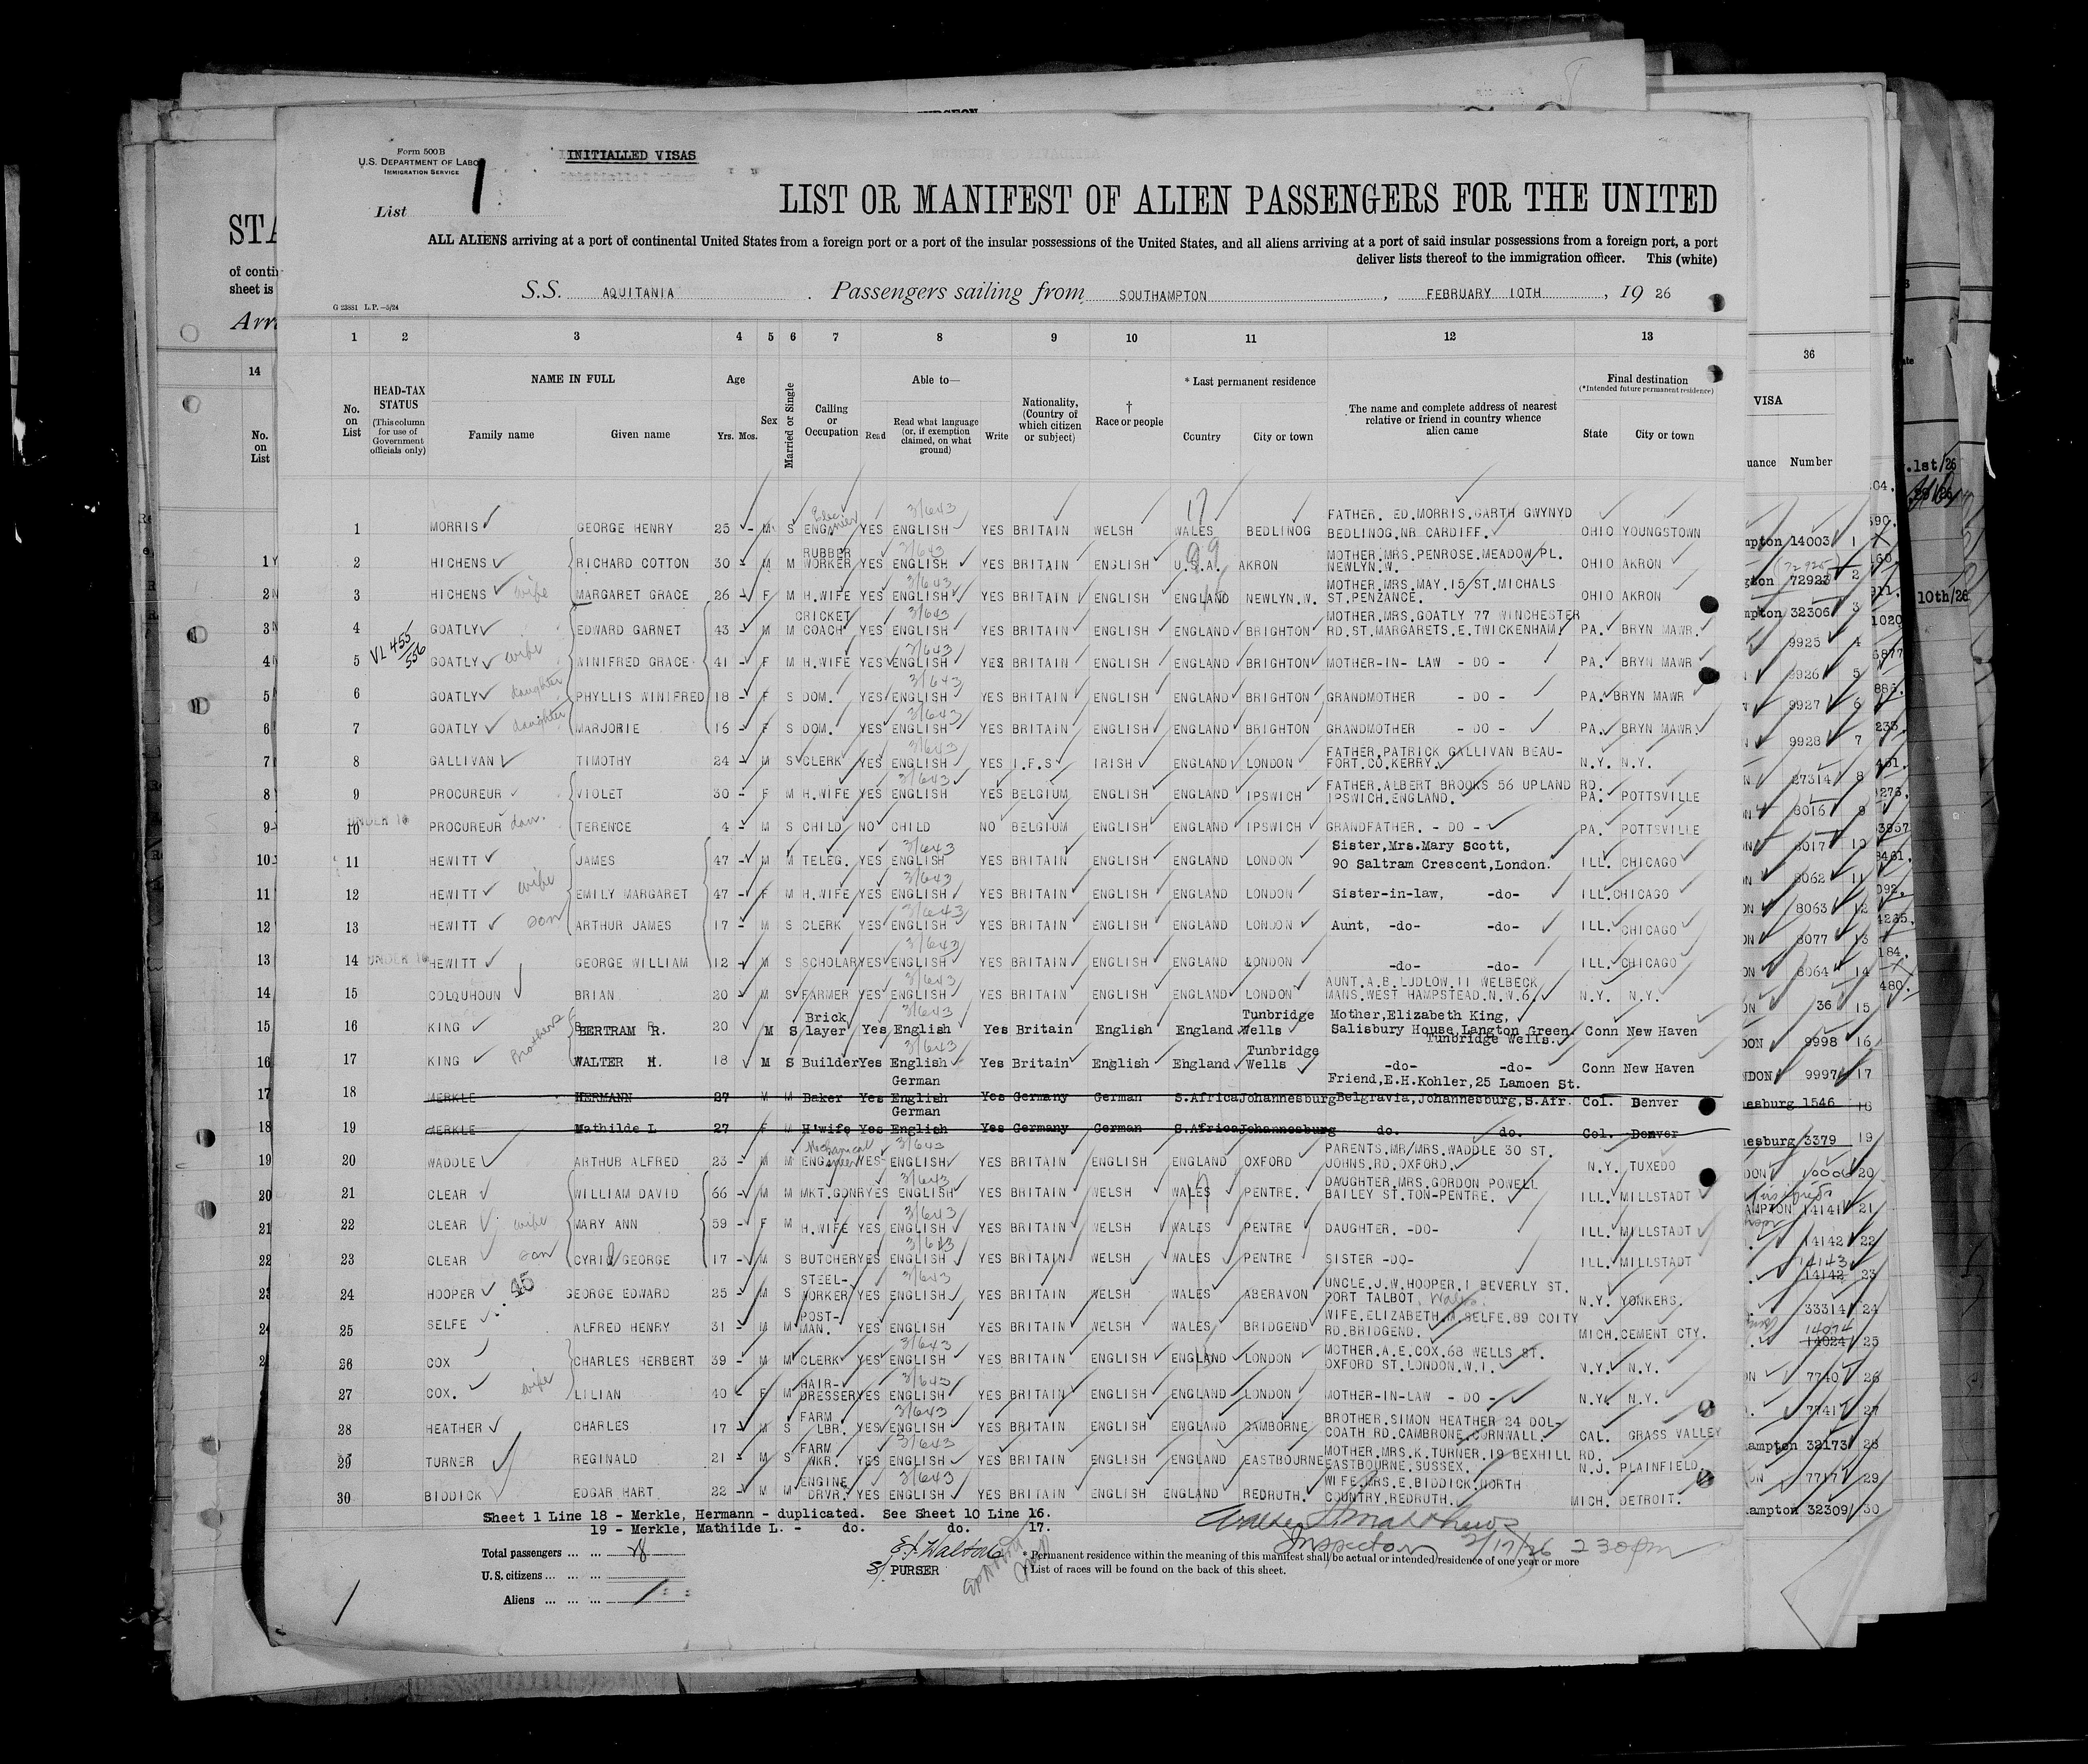 Form 500B
U.S. DEPARTMENT OF LABO
IMMIGRATION SERVICE
INITIALLED VISAS
List 1
LIST OR MANIFEST OF ALIEN PASSENGERS FOR THE UNITED
ALL ALIENS arriving at a port of continental United States from a foreign port or a port of the insular possessions of the United States, and all aliens arriving at a port of said insular possessions from a foreign port, a port
deliver lists thereof to the immigration officer. This (white)
S.S. AQUITANIA. Passengers sailing from SOUTHAMPTON, FEBRUARY 10TH, 19 26
G 23881 L.P.—5/24
STA
of contin
sheet is
Arr
1 2 3 4 5 6 7 8 9 10 11 12 13
14 36
No. on List
HEAD-TAX STATUS (This column for use of Government officials only)
NAME IN FULL
Family name Given name
Age Yrs. Mos.
Sex
Married or Single
Calling or Occupation
Able to—
Read Read what language (or, if exemption claimed, on what ground) Write
Nationality, (Country of which citizen or subject)
† Race or people
* Last permanent residence
Country City or town
The name and complete address of nearest relative or friend in country whence alien came
Final destination
(*Intended future permanent residence)
State City or town
No. on List
VISA
uance Number
1 MORRIS GEORGE HENRY 25 - M S Elec ENGineer YES ENGLISH 3/643 YES BRITAIN WELSH WALES BEDLINOG FATHER. ED.MORRIS.GARTH GWYNYD BEDLINOG.NR CARDIFF. OHIO YOUNGSTOWN
2 HICHENS RICHARD COTTON 30 - M M RUBBER WORKER YES ENGLISH 3/643 YES BRITAIN ENGLISH U.S.A. AKRON MOTHER.MRS.PENROSE.MEADOW PL. NEWLYN.W. OHIO AKRON
3 HICHENS wife MARGARET GRACE 26 - F M H.WIFE YES ENGLISH 3/643 YES BRITAIN ENGLISH ENGLAND NEWLYN.W. MOTHER.MRS.MAY.15 ST.MICHALS ST.PENZANCE. OHIO AKRON
4 GOATLY EDWARD GARNET 43 - M M CRICKET COACH YES ENGLISH 3/643 YES BRITAIN ENGLISH ENGLAND BRIGHTON MOTHER.MRS.GOATLY 77 WINCHESTER RD.ST.MARGARETS.E.TWICKENHAM. PA. BRYN MAWR.
VL 455/556
5 GOATLY wife WINIFRED GRACE 41 - F M H.WIFE YES ENGLISH 3/643 YES BRITAIN ENGLISH ENGLAND BRIGHTON MOTHER-IN- LAW - DO - PA. BRYN MAWR
6 GOATLY daughter PHYLLIS WINIFRED 18 - F S DOM. YES ENGLISH 3/643 YES BRITAIN ENGLISH ENGLAND BRIGHTON GRANDMOTHER - DO - PA. BRYN MAWR
7 GOATLY daughter MARJORIE 15 - F S DOM. YES ENGLISH 3/643 YES BRITAIN ENGLISH ENGLAND BRIGHTON GRANDMOTHER - DO - PA. BRYN MAWR.
8 GALLIVAN TIMOTHY 24 - M S CLERK YES ENGLISH 3/643 YES I.F.S IRISH ENGLAND LONDON FATHER.PATRICK GALLIVAN BEAU- FORT.CO.KERRY. N.Y. N.Y.
9 PROCUREUR VIOLET 30 - F M H.WIFE YES ENGLISH 3/643 YES BELGIUM ENGLISH ENGLAND IPSWICH FATHER.ALBERT BROOKS 56 UPLAND RD. IPSWICH.ENGLAND. PA. POTTSVILLE
10 UNDER 16 PROCUREUR TERENCE 4 - M S CHILD NO CHILD NO BELGIUM ENGLISH ENGLAND IPSWICH GRANDFATHER. - DO - PA. POTTSVILLE
11 HEWITT JAMES 47 - M M TELEG. YES ENGLISH 3/643 YES BRITAIN ENGLISH ENGLAND LONDON Sister,Mrs.Mary Scott, 90 Saltram Crescent,London. ILL. CHICAGO
12 HEWITT wife EMILY MARGARET 47 - F M H.WIFE YES ENGLISH 3/643 YES BRITAIN ENGLISH ENGLAND LONDON Sister-in-law, -do- ILL. CHICAGO
13 HEWITT son ARTHUR JAMES 17 - M S CLERK YES ENGLISH 3/643 YES BRITAIN ENGLISH ENGLAND LONDON Aunt, -do- -do- ILL. CHICAGO
14 UNDER 16 HEWITT GEORGE WILLIAM 12 - M S SCHOLAR YES ENGLISH 3/643 YES BRITAIN ENGLISH ENGLAND LONDON -do- -do- ILL. CHICAGO
15 COLQUHOUN BRIAN 20 - M S FARMER YES ENGLISH 3/643 YES BRITAIN ENGLISH ENGLAND LONDON AUNT.A.B.LUDLOW.11 WELBECK MANS.WEST HAMPSTEAD.N.W.6. N.Y. N.Y.
16 KING Brothers BERTRAM R. 20 M S Brick layer Yes English 3/643 Yes Britain English England Tunbridge Wells Mother,Elizabeth King, Salisbury House,Langton Green Tunbridge Wells. Conn New Haven
17 KING WALTER H. 18 M S Builder Yes English 3/643 Yes Britain English England Tunbridge Wells -do- -do- Conn New Haven
18 MERKLE HERMANN 27 M M Baker Yes German English Yes Germany German S.Africa Johannesburg Friend,E.H.Kohler,25 Lamoen St. Belgravia,Johannesburg,S.Afr. Col. Denver
19 MERKLE Mathilde L 27 F M H'wife Yes German English Yes Germany German S.Africa Johannesburg do. do. Col. Denver
20 WADDLE ARTHUR ALFRED 23 - M M Mechanical ENGineer YES ENGLISH 3/643 YES BRITAIN ENGLISH ENGLAND OXFORD PARENTS.MR/MRS.WADDLE 30 ST. JOHNS.RD.OXFORD. N.Y. TUXEDO
21 CLEAR WILLIAM DAVID 66 - M M MKT.GDNR YES ENGLISH 3/643 YES BRITAIN WELSH WALES PENTRE. DAUGHTER.MRS.GORDON POWELL BAILEY ST.TON-PENTRE. ILL. MILLSTADT
22 CLEAR wife MARY ANN 59 - F M H.WIFE YES ENGLISH 3/643 YES BRITAIN WELSH WALES PENTRE DAUGHTER. -DO- ILL. MILLSTADT
23 CLEAR son CYRIl GEORGE 17 - M S BUTCHER YES ENGLISH 3/643 YES BRITAIN WELSH WALES PENTRE SISTER -DO- ILL. MILLSTADT
24 HOOPER GEORGE EDWARD 25 - M S STEEL- WORKER YES ENGLISH 3/643 YES BRITAIN WELSH WALES ABERAVON UNCLE.J.W.HOOPER.1 BEVERLY ST. PORT TALBOT. Wales. N.Y. YONKERS.
25 SELFE ALFRED HENRY 31 - M M POST- MAN. YES ENGLISH YES BRITAIN WELSH WALES BRIDGEND WIFE.ELIZABETH.M.SELFE.89 COITY RD.BRIDGEND. MICH. CEMENT CTY.
26 COX CHARLES HERBERT 39 - M M CLERK YES ENGLISH 3/643 YES BRITAIN ENGLISH ENGLAND LONDON MOTHER.A.E.COX.68 WELLS ST. OXFORD ST.LONDON.W.1. N.Y. N.Y.
27 COX. wife LILIAN 40 - F M HAIR- DRESSER YES ENGLISH 3/643 YES BRITAIN ENGLISH ENGLAND LONDON MOTHER-IN-LAW - DO - N.Y. N.Y.
28 HEATHER CHARLES 17 - M S FARM LBR. YES ENGLISH 3/643 YES BRITAIN ENGLISH ENGLAND CAMBORNE BROTHER.SIMON HEATHER 24 DOL- COATH RD.CAMBRONE.CORNWALL. CAL. GRASS VALLEY
29 TURNER REGINALD 21 - M S FARM WKR. YES ENGLISH 3/643 YES BRITAIN ENGLISH ENGLAND EASTBOURNE MOTHER.MRS.K.TURNER.19 BEXHILL RD. EASTBOURNE.SUSSEX. N.J. PLAINFIELD.
30 BIDDICK EDGAR HART 22 - M M ENGINE DRVR. YES ENGLISH 3/643 YES BRITAIN ENGLISH ENGLAND REDRUTH. WIFE.MRS.E.BIDDICK.NORTH COUNTRY.REDRUTH. MICH. DETROIT.
mpton 14003 1
gton 72923 2
mpton 32306 3
9925 4
9926 5
9927 6
9928 7
27314 8
8016 9
8017 10
8062 11
8063 12
8077 13
8064 14
36 15
DON 9998 16
NDON 9997 17
esburg 1546 18
esburg 3379 19
DON 10006 20
AMPTON 14141 21
14142 22
14143 14142 23
33314 24
14074 14024 25
7740 26
7741 27
ampton 32173 28
7717 29
ampton 32309 30
.1st/26
10th/26
Sheet 1 Line 18 - Merkle, Hermann - duplicated. See Sheet 10 Line 16.
19 - Merkle, Mathilde L. - do. do. 17.
Total passengers ... ... 28
U.S. citizens ... ... ...
Aliens ... ... ...
PURSER
Inspector 2/17/26 230 pm
* Permanent residence within the meaning of this manifest shall be actual or intended residence of one year or more
† List of races will be found on the back of this sheet.
1